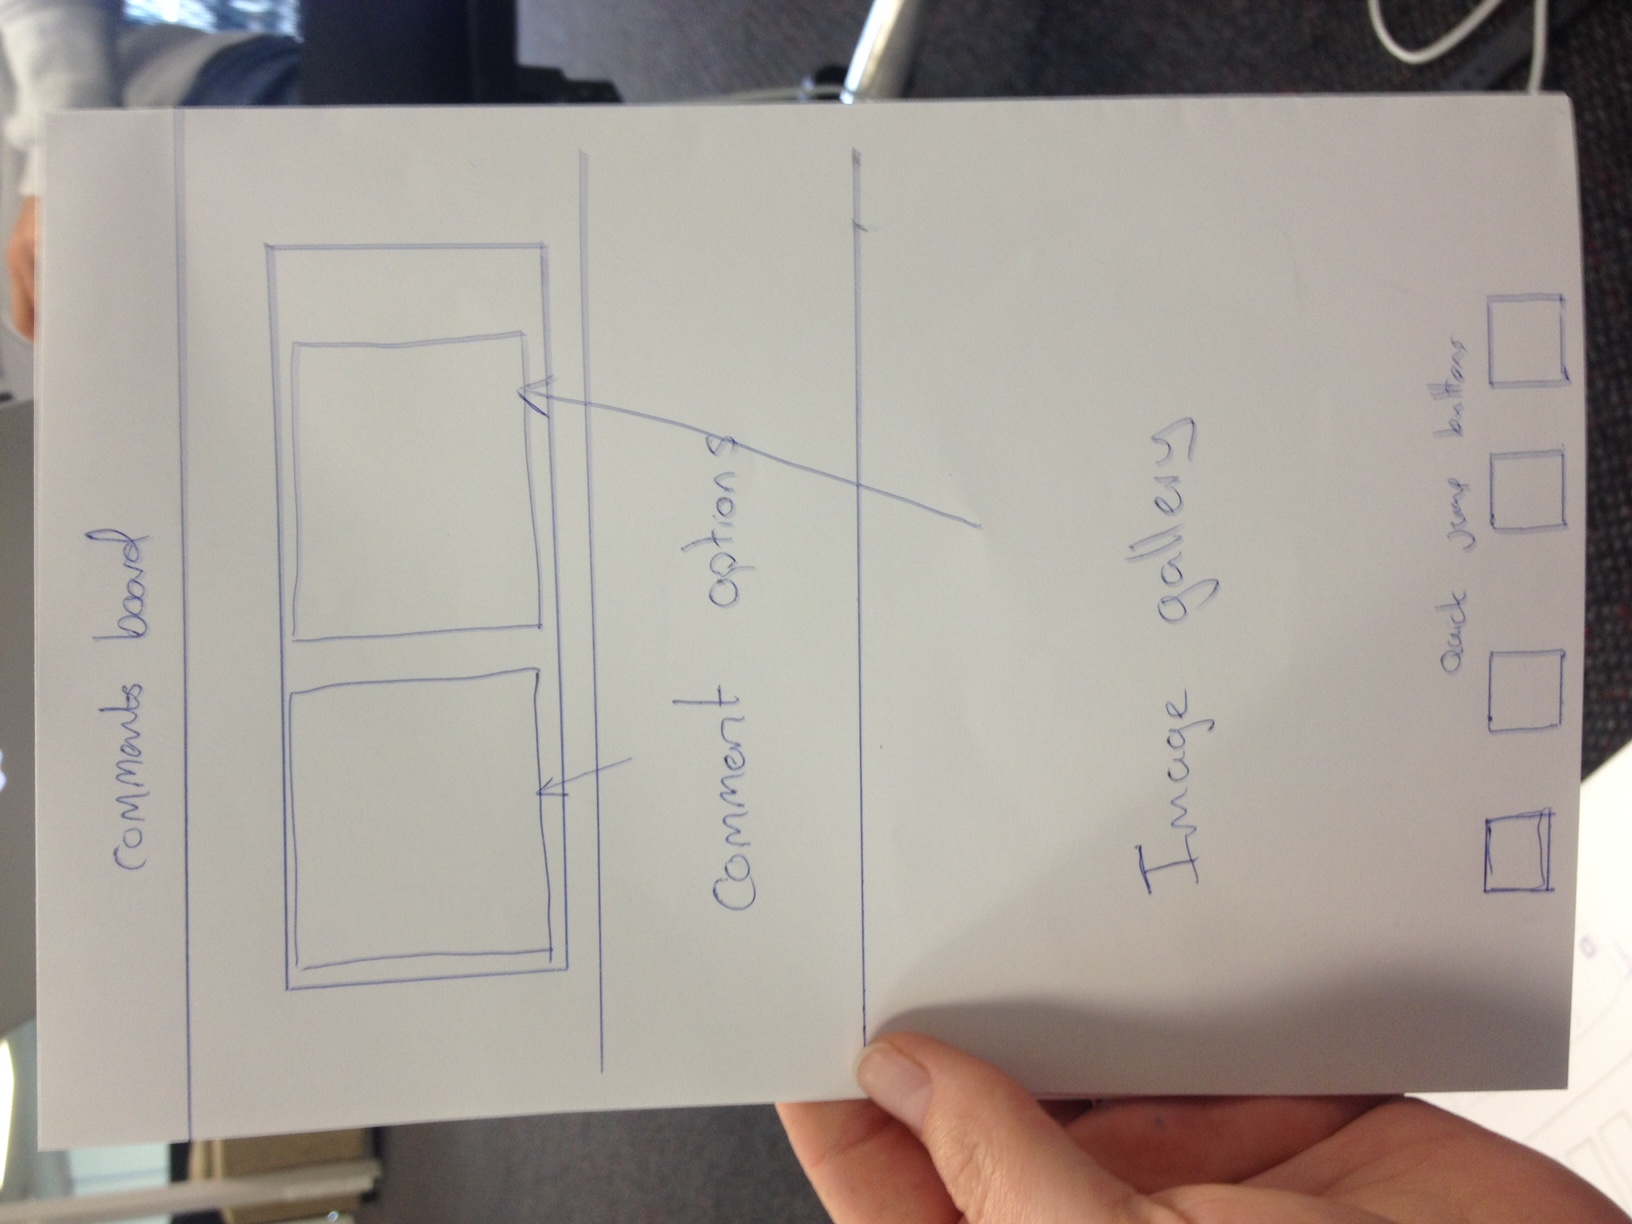 comments board
comment options
Image gallery
Quick jump buttons